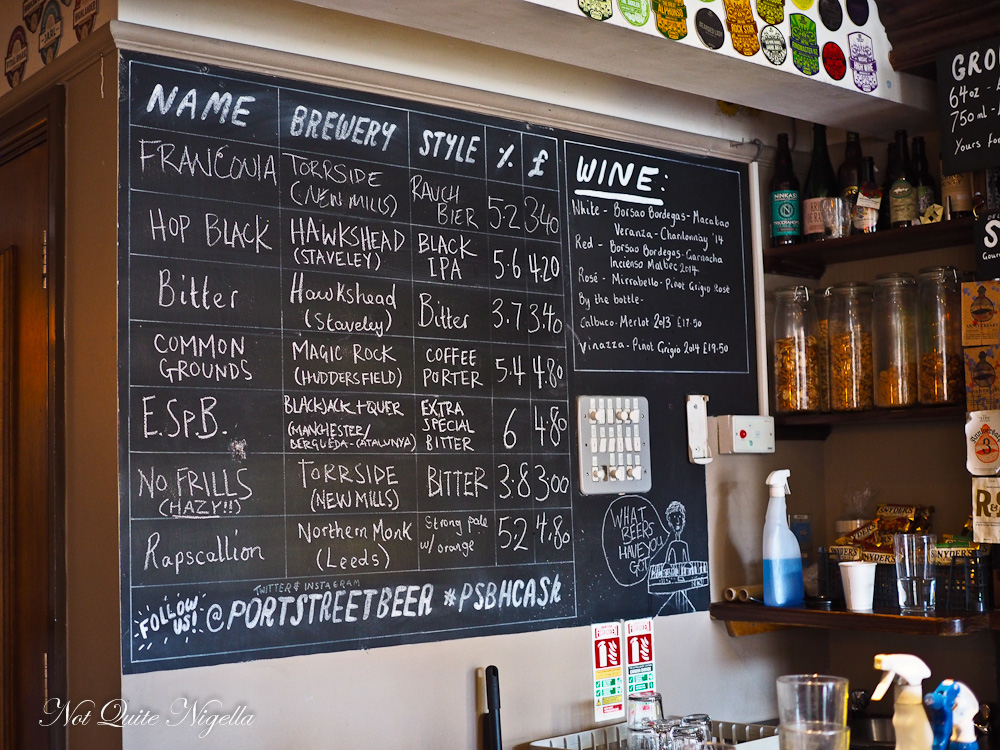 NAME BREWERY STYLE % £
FRANCONIA TORRSIDE (NEW MILLS) RAUCH BIER 5.2 3.40
HOP BLACK HAWKSHEAD (STAVELEY) BLACK IPA 5.6 4.20
Bitter Hawkshead (Staveley) Bitter 3.7 3.40
COMMON GROUNDS MAGIC ROCK (HUDDERSFIELD) COFFEE PORTER 5.4 4.80
E.SpB. BLACKJACK + QUER (MANCHESTER/ BERGUEDA-CATALUNYA) EXTRA SPECIAL BITTER 6 4.80
NO FRILLS (HAZY!!) TORRSIDE (NEW MILLS) BITTER 3.8 3.00
Rapscallion Northern Monk (Leeds) Strong pale w/ orange 5.2 4.80
FOLLOW US!
TWITTER & INSTAGRAM
@PORTSTREETBEER #PSBHCASK
WINE:
White - Borsao Bordegas - Macabao
Veranza - Chardonnay '14
Red - Borsao Bordegas - Garnacha
Incienso Malbec 2014
Rosé - Mirrabello - Pinot Grigio Rosé
By the bottle -
Calbuco - Merlot 2013 £17.50
Vinazza - Pinot Grigio 2014 £19.50
WHAT
BEERS
HAVE YOU
GOT
GRO
64oz -
750ml -
Yours fo
NINKASI
SNYDER'S
SNYDER'S
SNYDER'S
R&
3
Not Quite Nigella